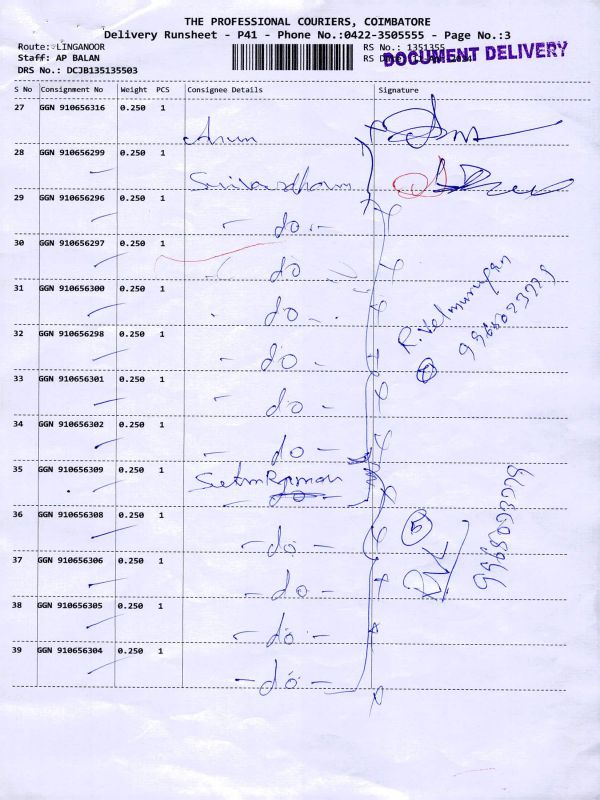 THE PROFESSIONAL COURIERS, COIMBATORE
Delivery Runsheet - P41 - Phone No.:0422-3505555 - Page No.:3
Route: LINGANOOR RS No.: 1351355
DOCUMENT DELIVERY
Staff: AP BALAN
DRS No.: DCJB135135503
S No Consignment No Weight PCS Consignee Details Signature
27 GGN 910656316 0.250 1
Arun
28 GGN 910656299 0.250 1
29 GGN 910656296 0.250 1
- do -
30 GGN 910656297 0.250 1
do
R. Velmurugan
31 GGN 910656300 0.250 1
- do -
32 GGN 910656298 0.250 1
- do -
33 GGN 910656301 0.250 1
- do -
34 GGN 910656302 0.250 1
- do -
35 GGN 910656309 0.250 1
do
36 GGN 910656308 0.250 1
5
- do -
37 GGN 910656306 0.250 1
- do -
38 GGN 910656305 0.250 1
- do -
39 GGN 910656304 0.250 1
- do -